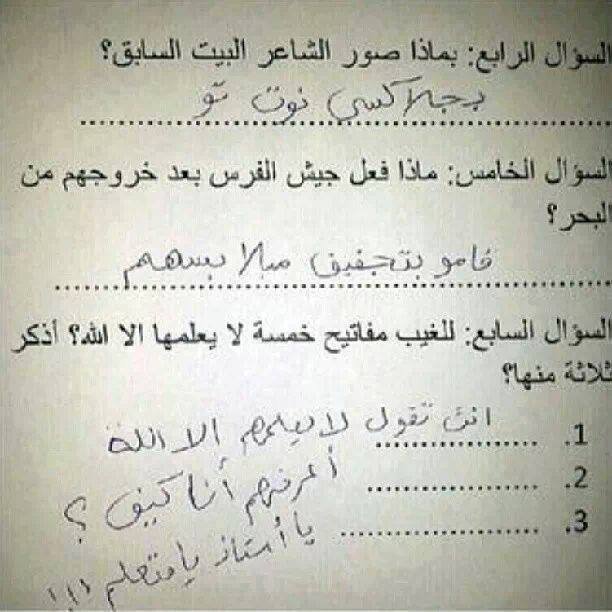 السؤال الرابع: بماذا صور الشاعر البيت السابق؟
بجلاكسي نوت تو
السؤال الخامس: ماذا فعل جيش الفرس بعد خروجهم من
البحر؟
قامو بتجفيف ملابسهم
السؤال السابع: للغيب مفاتيح خمسة لا يعلمها الا الله؟ أذكر
ثلاثة منها؟
1. انت تقول لا يعلمهم الا اللة
2. أعرفهم أنا كيف ؟
3. يا أستاذ يا متعلم !!!